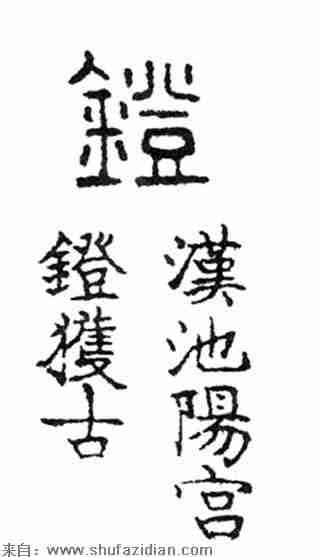 鐙
漢池陽宮
鐙獲古
来自：www.shufazidian.com